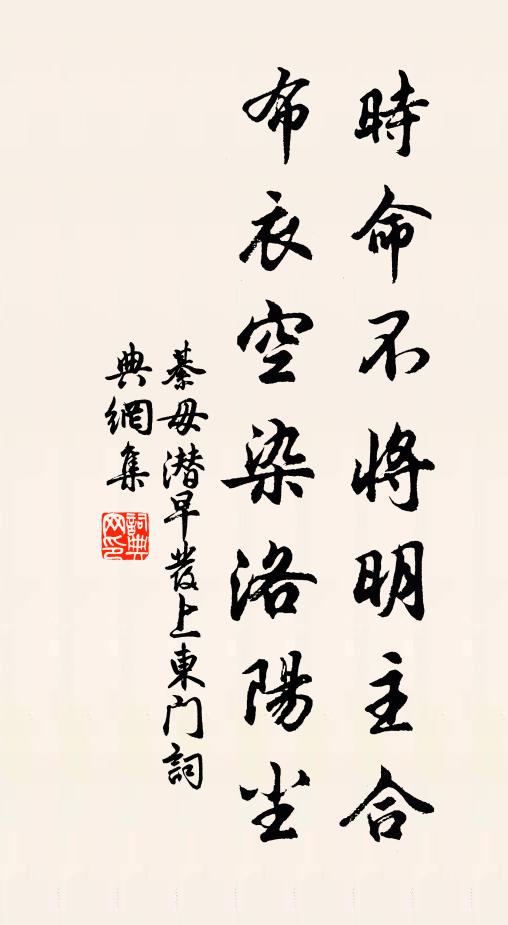 時命不將明主合
布衣空染洛陽尘
綦毋潜早發上東门詞
典網集
詞典
网印